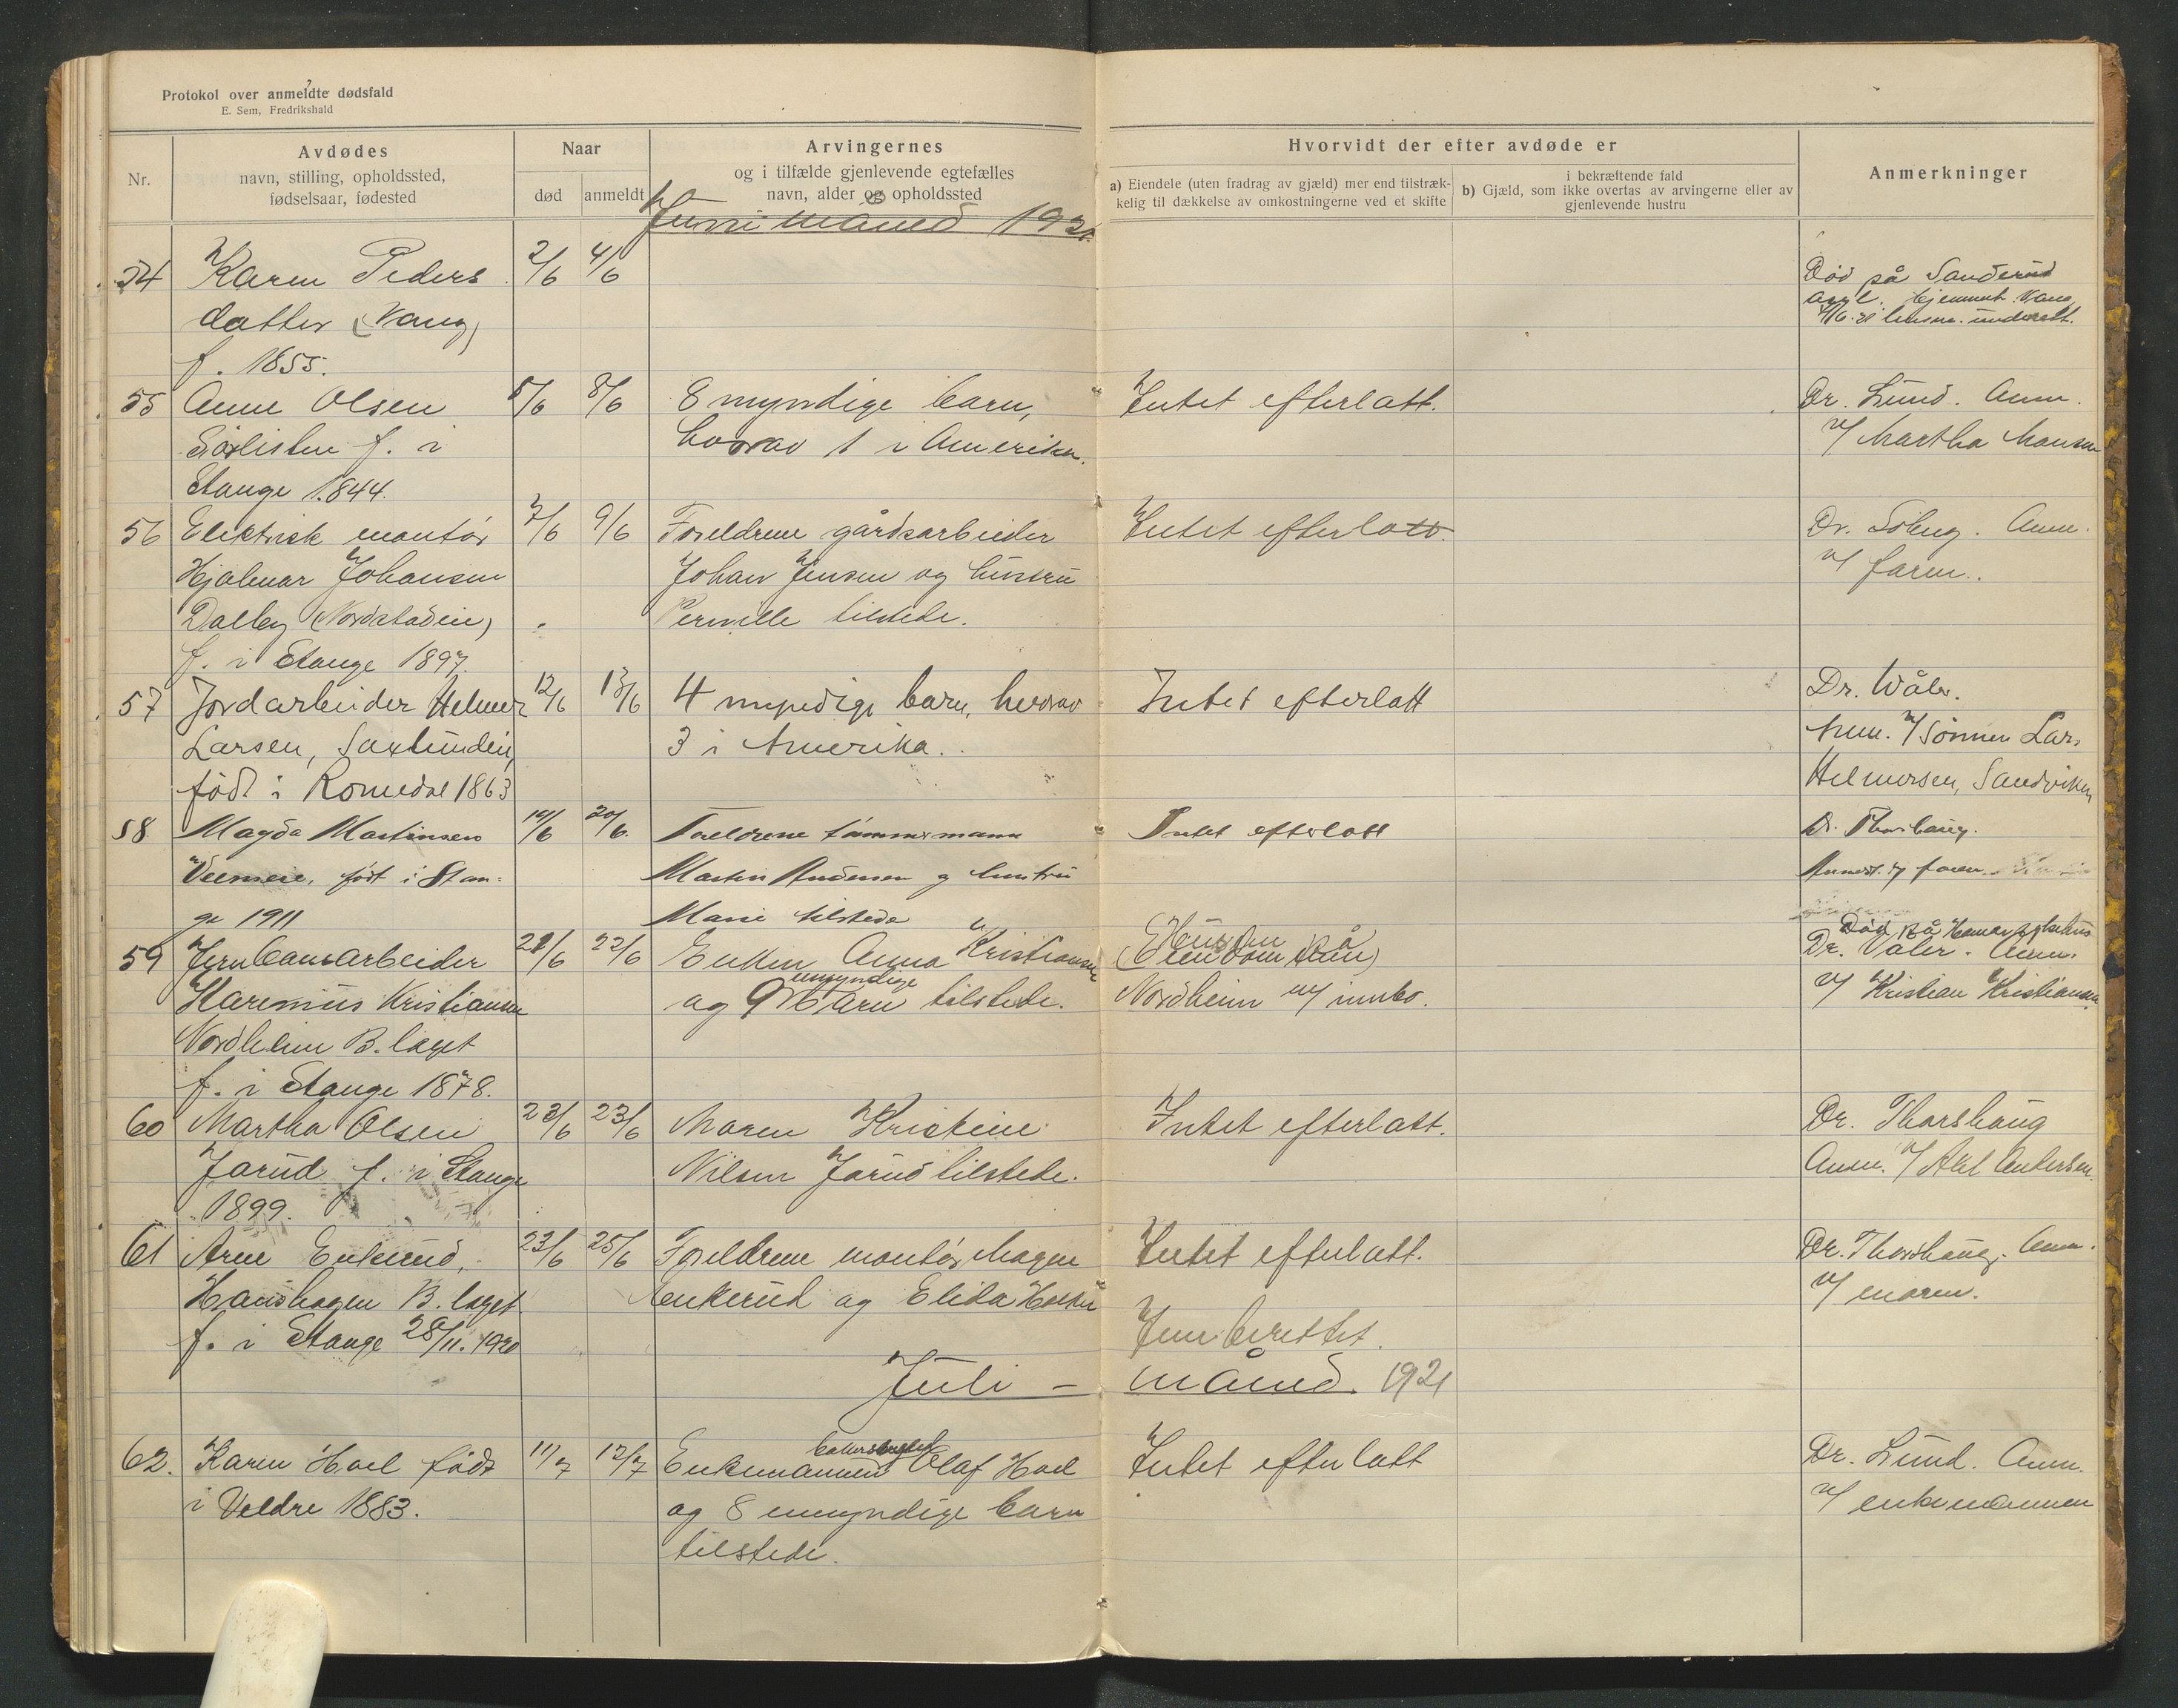 Protokol over anmeldte dødsfald
E. Sem, Fredrikshald
Nr.
Avdødes
navn, stilling, opholdssted,
fødselsaar, fødested
Naar
død
anmeldt
Arvingernes
og i tilfælde gjenlevende egtefælles
navn, alder og opholdssted
Hvorvidt der efter avdøde er
a) Eiendele (uten fradrag av gjæld) mer end tilstræk-
kelig til dækkelse av omkostningerne ved et skifte
i bekræftende fald
b) Gjæld, som ikke overtas av arvingerne eller av
gjenlevende hustru
Anmerkninger
Juni måned 192
54 Karen Peders 2/6 4/6 Død på Sanderud
datter (Vang) asyl. Vang
f. 1855. underrett.
55 Anne Olsen 5/6 8/6 8 myndige barn, Intet efterlatt. Dr. Lund. Anm.
f. i hvorav 1 i Amerika. v/ Martha Hansen
Stange 1844.
56 Elektrisk montør 7/6 9/6 Foreldrene gårdsarbeider Intet efterlatt. Dr. Anm.
Hjalmar Johansen Johan Jensen og hustru v/ faren.
Dalby (Nordstadeie) Pernille tilstede.
f. i Stange 1897.
57 Jordarbeider Helmer 12/6 13/6 4 myndige barn, hvorav Intet efterlatt Dr. Våler.
Larsen, Saxlundeie, 3 i Amerika. Anm. v/ sønnen Lars
født i Romedal 1863 Helmersen, Sandviken
58 Magda Martinsen 19/6 20/6. Foreldrene tømmermann Intet efterlatt Dr. Thorshaug.
født i Stan- Martin Andersen og hustru Anmeldt v/ faren
ge 1911 Marie tilstede
59 Jernbanearbeider 21/6 22/6 Enken Anna Kristiansen Husden på Død på Hamar sykehus
(Eiendom kun) Dr. Våler. Anm.
Karenius Kristiansen og 9 umyndige barn tilstede. Nordheim m/ innbo. v/ Kristian Kristiansen
Nordheim B. laget
f. i Stange 1878.
60 Martha Olsen 23/6 23/6 Maren Kristine Intet efterlatt. Dr. Thorshaug
Jarud f. i Stange Nilsen Jarud tilstede. Anm. v/ Axel Andersen.
1899.
61 Arne Enkerud, 23/6 25/6 Foreldrene montør Magne Intet efterlatt. Dr. Thorshaug. Anm.
Haushagen B. laget Enkerud og Elida v/ moren.
f. i Stange 28/11. 1920 Innberettet.
Juli – måned. 1921
62. Karen Hoel født 11/7 12/7 Enkemannen Olaf Hoel Intet efterlatt Dr. Lund. Anm.
i Veldre 1883. og 8 umyndige barn v/ enkemannen
tilstede.